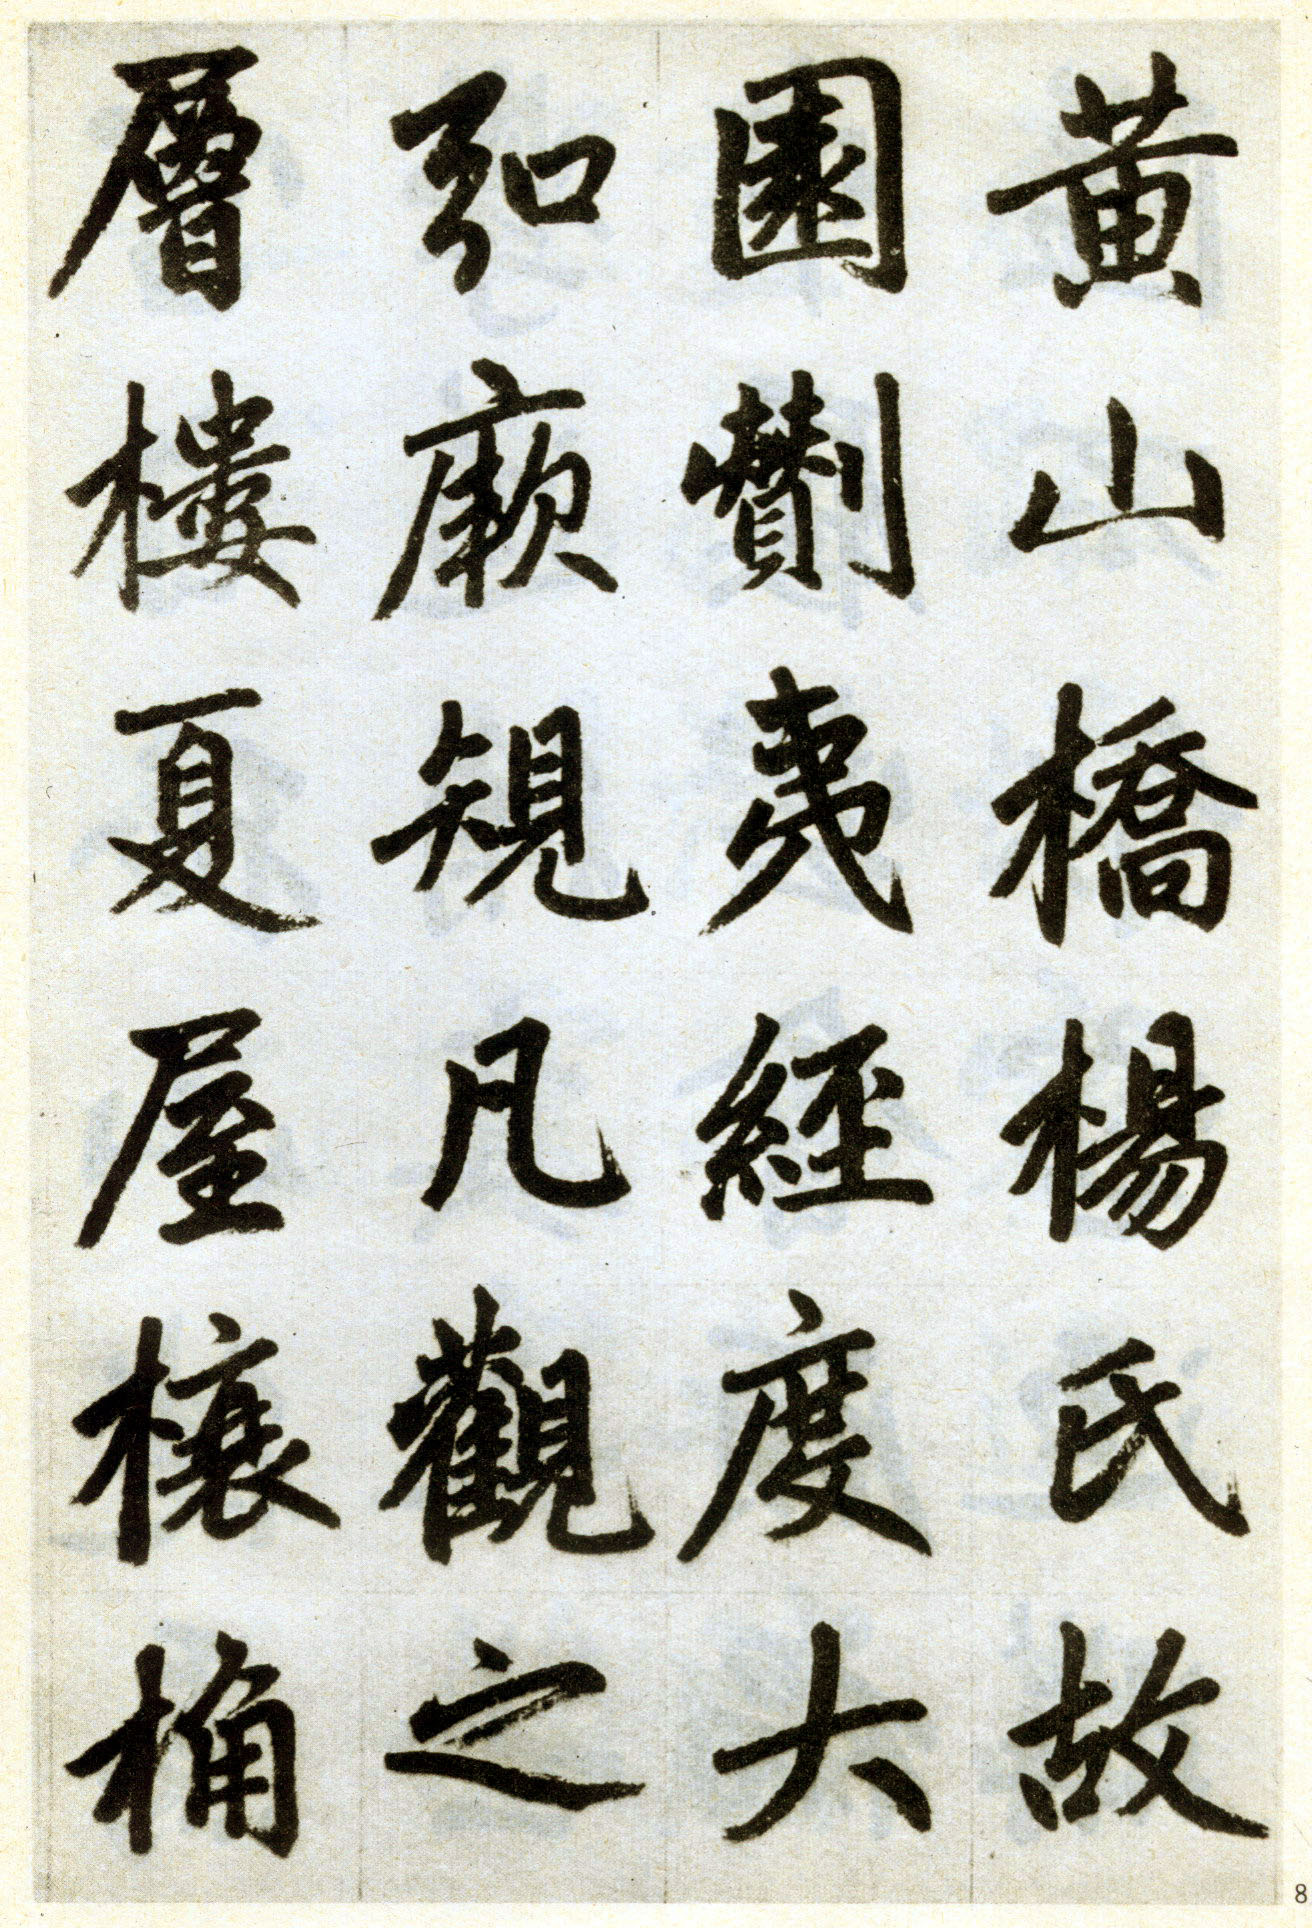 黄山橋楊氏故
園剗夷經度大
弘厥規凡觀之
層樓夏屋榱桷
8